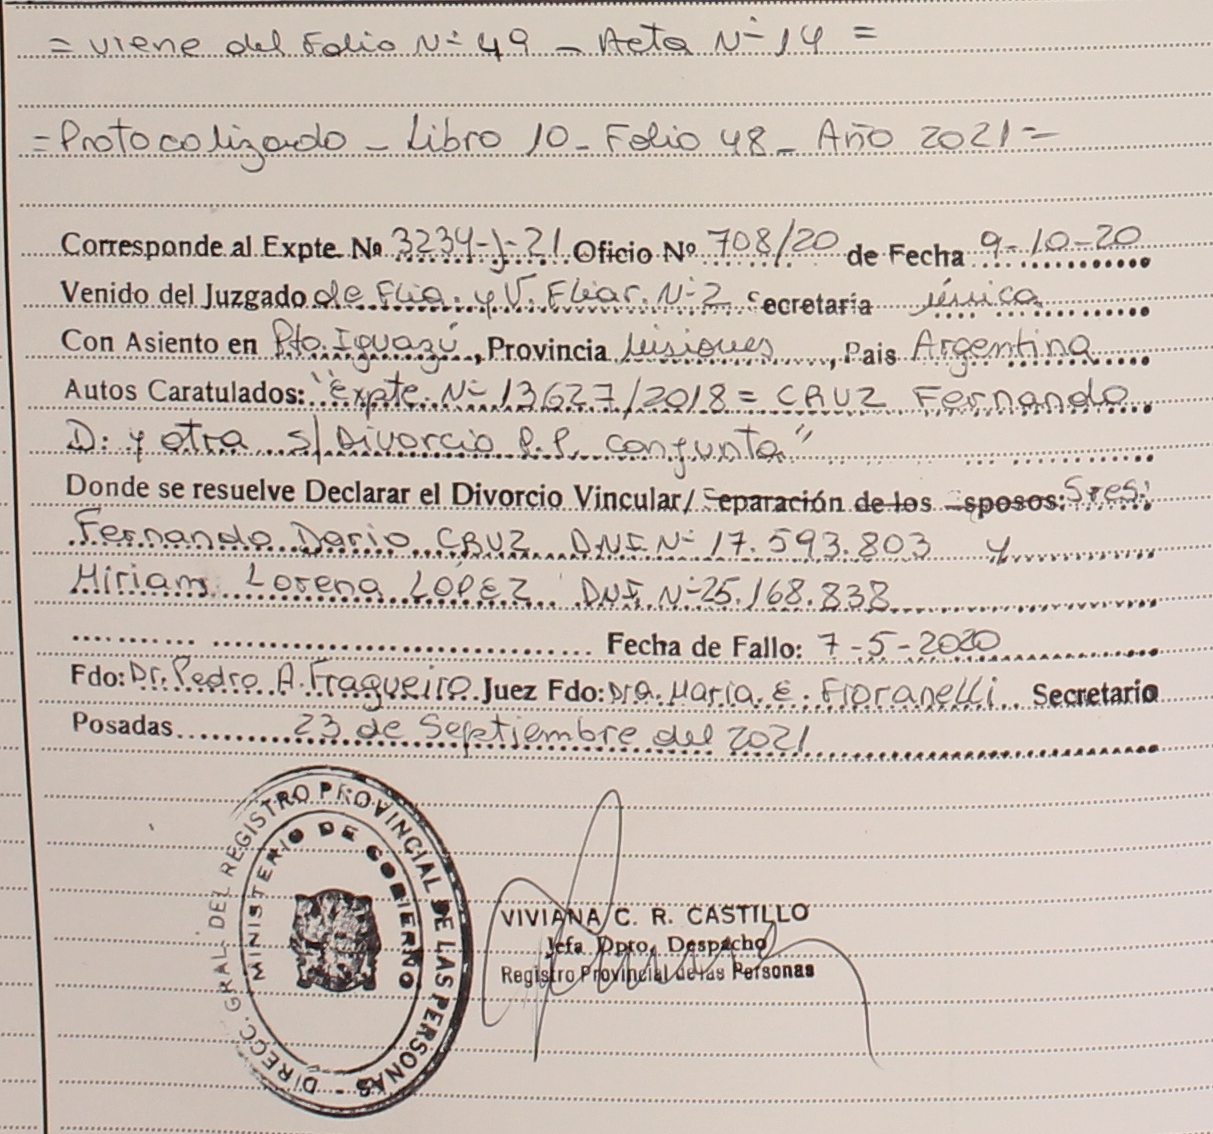 = viene del Folio Nº 49 - Acta Nº 14 =
= Protocolizado - Libro 10 - Folio 48 - Año 2021 =
Corresponde al Expte. Nº 3234-J-21 Oficio Nº 708/20 de Fecha 9-10-20
Venido del Juzgado de Flia. y V. Fliar. Nº 2 Secretaría única
Con Asiento en Pto. Iguazú, Provincia Misiones, Pais Argentina
Autos Caratulados: "Expte. Nº 13627/2018 = CRUZ Fernando
D. y otra s/ Divorcio P.P. conjunta"
Donde se resuelve Declarar el Divorcio Vincular/ Separación de los Esposos: Sres.
Fernando Dario CRUZ DNI Nº 17.593.803 y
Miriam Lorena LÓPEZ DNI Nº 25.168.838
Fecha de Fallo: 7-5-2020
Fdo: Dr. Pedro A. Fragueiro Juez Fdo: Dra. Maria. E. Fioranelli Secretario
Posadas 23 de Septiembre del 2021
DIRECC. GRAL. DEL REGISTRO PROVINCIAL DE LAS PERSONAS -
MINISTERIO DE GOBIERNO
VIVIANA C. R. CASTILLO
Jefa Dpto. Despacho
Registro Provincial de las Personas